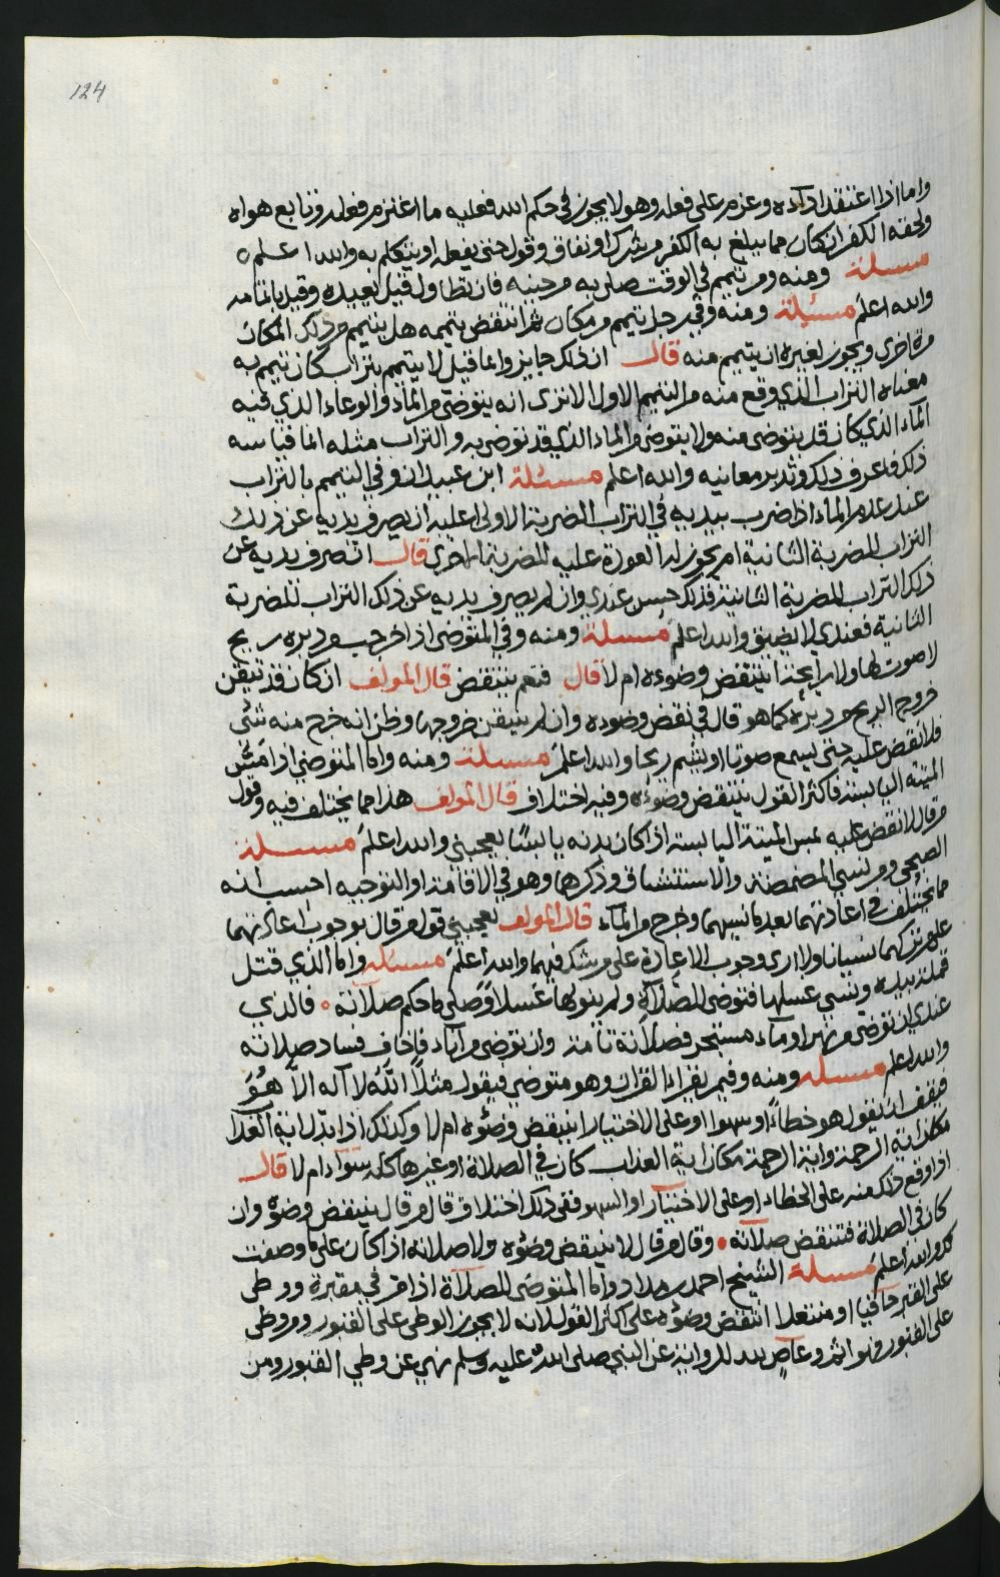 124
واما اذا اعتقد اداءه وعزم على فعله وهو لا يجوز في حكم الله فعليه ما اعتزم فعله وتابع هواه
ولحقه الكفر ان كان مما يبلغ به الكفر من شرك او نفاق وقول حتى يفعله او يتكلم به والله اعلم
مسئلة ومنه ومن تيمم في الوقت صلى به من حينه فان تطاول قيل يعيده وقيل بالتمامه
والله اعلم مسئلة ومنه وفي رجل تيمم من مكان ثم انتقض تيممه هل يتيمم من ذلك المكان
مرة اخرى ويجوز لغيره ان يتيمم منه قال ان ذلك جايز وانما قيل لا يتيمم بتراب كان تيمم به
معناه التراب الذي وقع منه من التيمم الاول الا ترى انه يتوضى من الماء والوعاء الذي فيه
الماء الذي كان قد يتوضى منه ولا يتوضى من الماء الذي قد توضى به والتراب مثله انما قياسه
ذلك فاعرف ذلك وتدبر معانيه والله اعلم مسئلة ابن عبيدان وفي التيمم بالتراب
عند عدم الماء اذا ضرب بيديه في التراب الضربة الاولى اعليه ان يصرف يديه عن ذلك
التراب للضربة الثانية ام يجوز له العودة عليه للضربة الاخرى قال ان صرف يديه عن
ذلك التراب للضربة الثانية فذلك حسن عندي وان لم يصرف يديه عن ذلك التراب للضربة
الثانية فعندي لا يضيق والله اعلم مسئلة ومنه وفي المتوضى اذا خرجت من دبره ريح
لا صوت لها ولا رايحة اينتقض وضوءه ام لا قال فنعم ينتقض قال المولف ان كان قد تيقن
خروج الريح من دبره كما هو قال في نقض وضوءه وان لم يتيقن خروجها وظن انه خرج منه شئ
فلا نقض عليه حتى يسمع صوتا او يشم ريحا والله اعلم مسئلة ومنه واما المتوضي اذا مس
الميتة اليابسة فاكثر القول ينتقض وضوءه وفيه اختلاف قال المولف هذا مما يختلف فيه وقول
من قال لا نقض عليه بمس الميتة اليابسة اذا كان بدنه يابسا يعجبني والله اعلم مسئلة
الصبحي ومن نسي المضمضة والاستنشاق وذكرهما وهو في الاقامة او التوجيه احسب انه
مما يختلف في اعادتهما بعد ما نسيهما وخرج من الماء قال المولف يعجبني قول من قال بوجوب اعادتهما
على من تركهما نسيانا ولا ارى وجوب الاعادة على من شك فيهما والله اعلم مسئلة واما الذي قتل
قملة بيده ونسي غسلها فتوضى للصلاة ولم ينو لها غسلا وصلى ما حكم صلاته فالذي
عندي ان توضى من نهر او ماء مستبحر فصلاته تامة وان توضى من اناء فاخاف فساد صلاته
والله اعلم مسئلة ومنه وفيمن يقرا القران وهو متوضي فيقول مثلا الله لا اله الا هو
فيقف ان يقول هو خطاء او سهوا او على الاختيار اينتقض وضوءه ام لا وكذلك اذا بدل اية العذاب
مكان اية الرحمة واية الرحمة مكان اية العذاب كان في الصلاة او غيرها كله سواء ام لا قال
اذا وقع ذلك منه على الخطاء او على الاختيار او السهو ففي ذلك اختلاف قال من قال ينتقض وضوءه وان
كان في الصلاة فتنتقض صلاته وقال من قال لا ينتقض وضوءه ولا صلاته اذا كان على ما وصفت
لك والله اعلم مسئلة الشيخ احمد بن مداد واما المتوضى للصلاة اذا مر في مقبرة ووطى
على القبر حافيا او منتعلا انتقض وضوءه على اكثر القول لانه لا يجوز الوطى على القبور ومن وطى
على القبور فهو اثم وعاص لله للرواية عن النبي صلى الله عليه وسلم نهى عن وطي القبور ومن